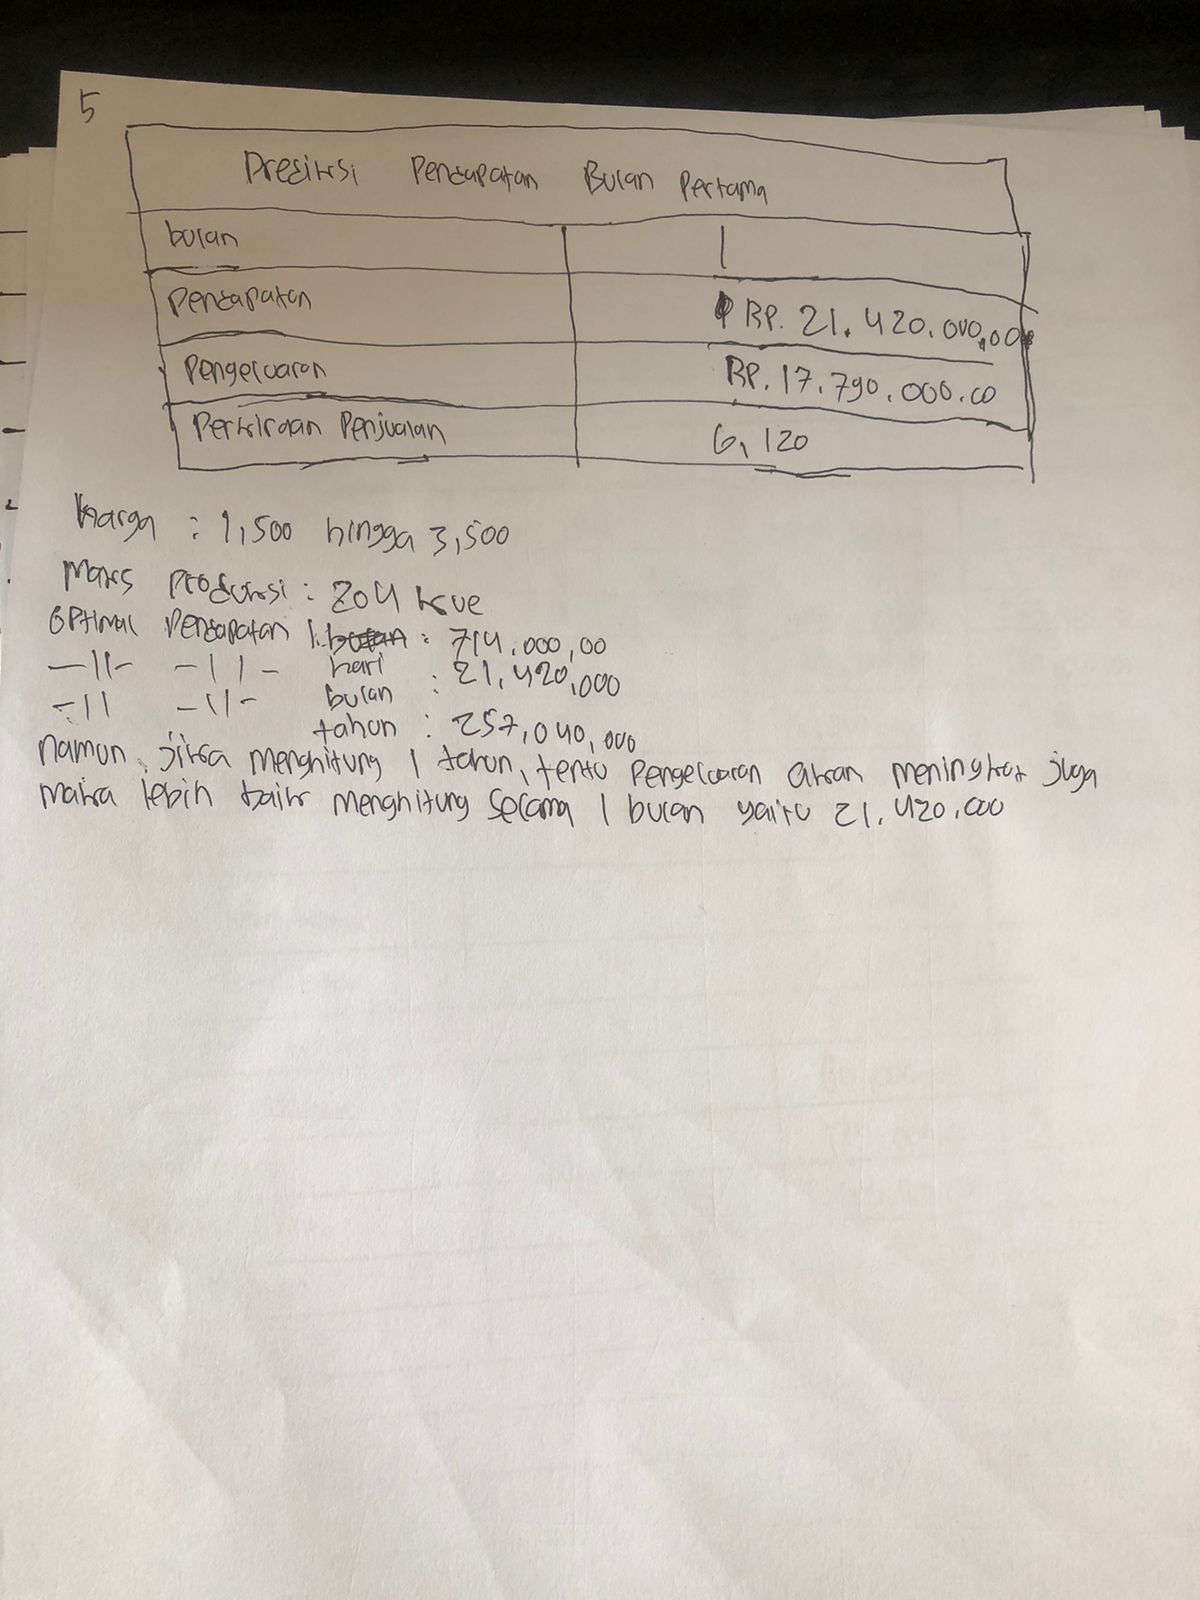 5
Prediksi Pendapatan Bulan Pertama
bulan 1
Pendapatan RP. 21.420.000,00
Pengeluaran RP. 17.790.000.00
Perkiraan Penjualan 6,120
Harga : 1,500 hingga 3,500
Maks Produksi : 204 kue
Optimal Pendapatan 1 : 714.000,00
—||— —||— hari : 21,420,000
—|| —||— bulan
tahun : 257,040,000
namun, jika menghitung 1 tahun, tentu Pengeluaran akan meningkat juga
maka lebih baik menghitung selama 1 bulan yaitu 21.420.000